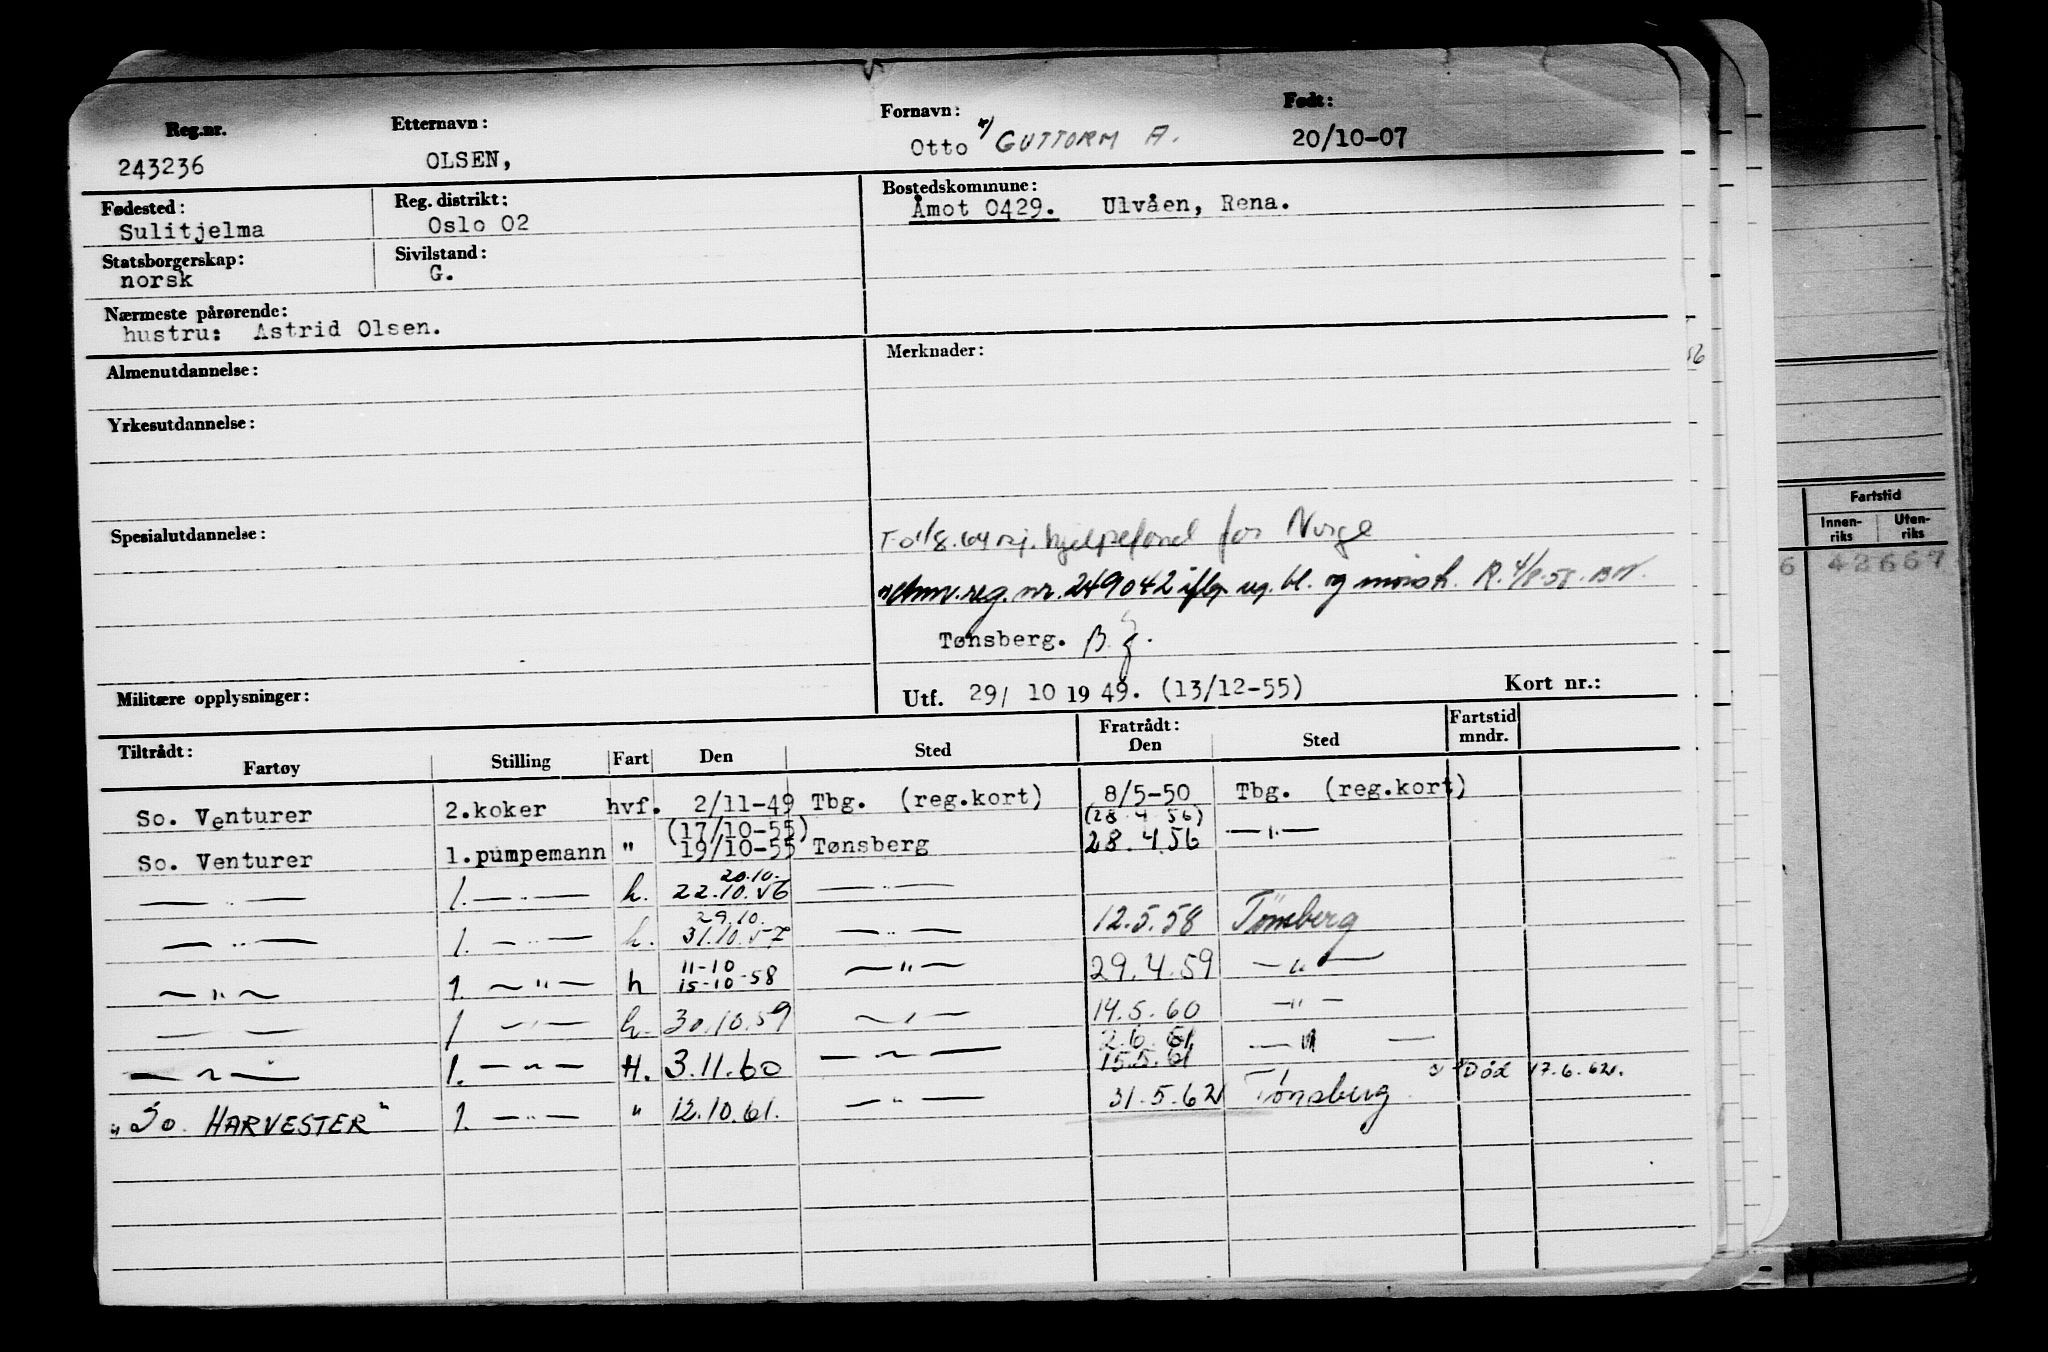 Reg.nr. Etternavn: Fornavn: Født:
243236 OLSEN, Otto *) GUTTORM A. 20/10-07
Fødested: Reg. distrikt: Bostedskommune:
Sulitjelma Oslo 02 Åmot 0429. Ulvåen, Rena.
Statsborgerskap: Sivilstand:
norsk G.
Nærmeste pårørende:
hustru: Astrid Olsen.
Almenutdannelse: Merknader:
Yrkesutdannelse:
Spesialutdannelse:
hjelpefond for Norge
reg. nr. 249042 iflg. og mønsh. R. 4/8-58.
Tønsberg. B
Militære opplysninger: Utf. 29/ 10 19 49. (13/12-55) Kort nr.:
Tiltrådt: Fratrådt: Fartstid
Fartøy Stilling Fart Den Sted Den Sted mndr.
So. Venturer 2.koker hvf. 2/11-49 Tbg. (reg.kort) 8/5-50 Tbg. (reg.kort)
(17/10-55) (28 4 56)
So. Venturer 1.pumpemann " 19/10-55 Tønsberg 28.4.56 —"—
20.10.
—"— 1. —"— h. 22.10.56 —"—
29.10.
—"— 1. —"— h. 31.10.57 —"— 12.5.58 Tønsberg
11-10
—"— 1. —"— h 15-10-58 —"— 29.4.59 —"—
—"— 1 —"— h. 30.10.59 —"— 14.5.60 —"—
2.6.61
—"— 1. —"— H. 3.11.60 —"— 15.5.61 —"—
Död 17.6.62.
"So. HARVESTER" 1. —"— " 12.10.61. —"— 31.5.62 Tønsberg
Fartstid
Innen-riks Uten-riks
6 42667